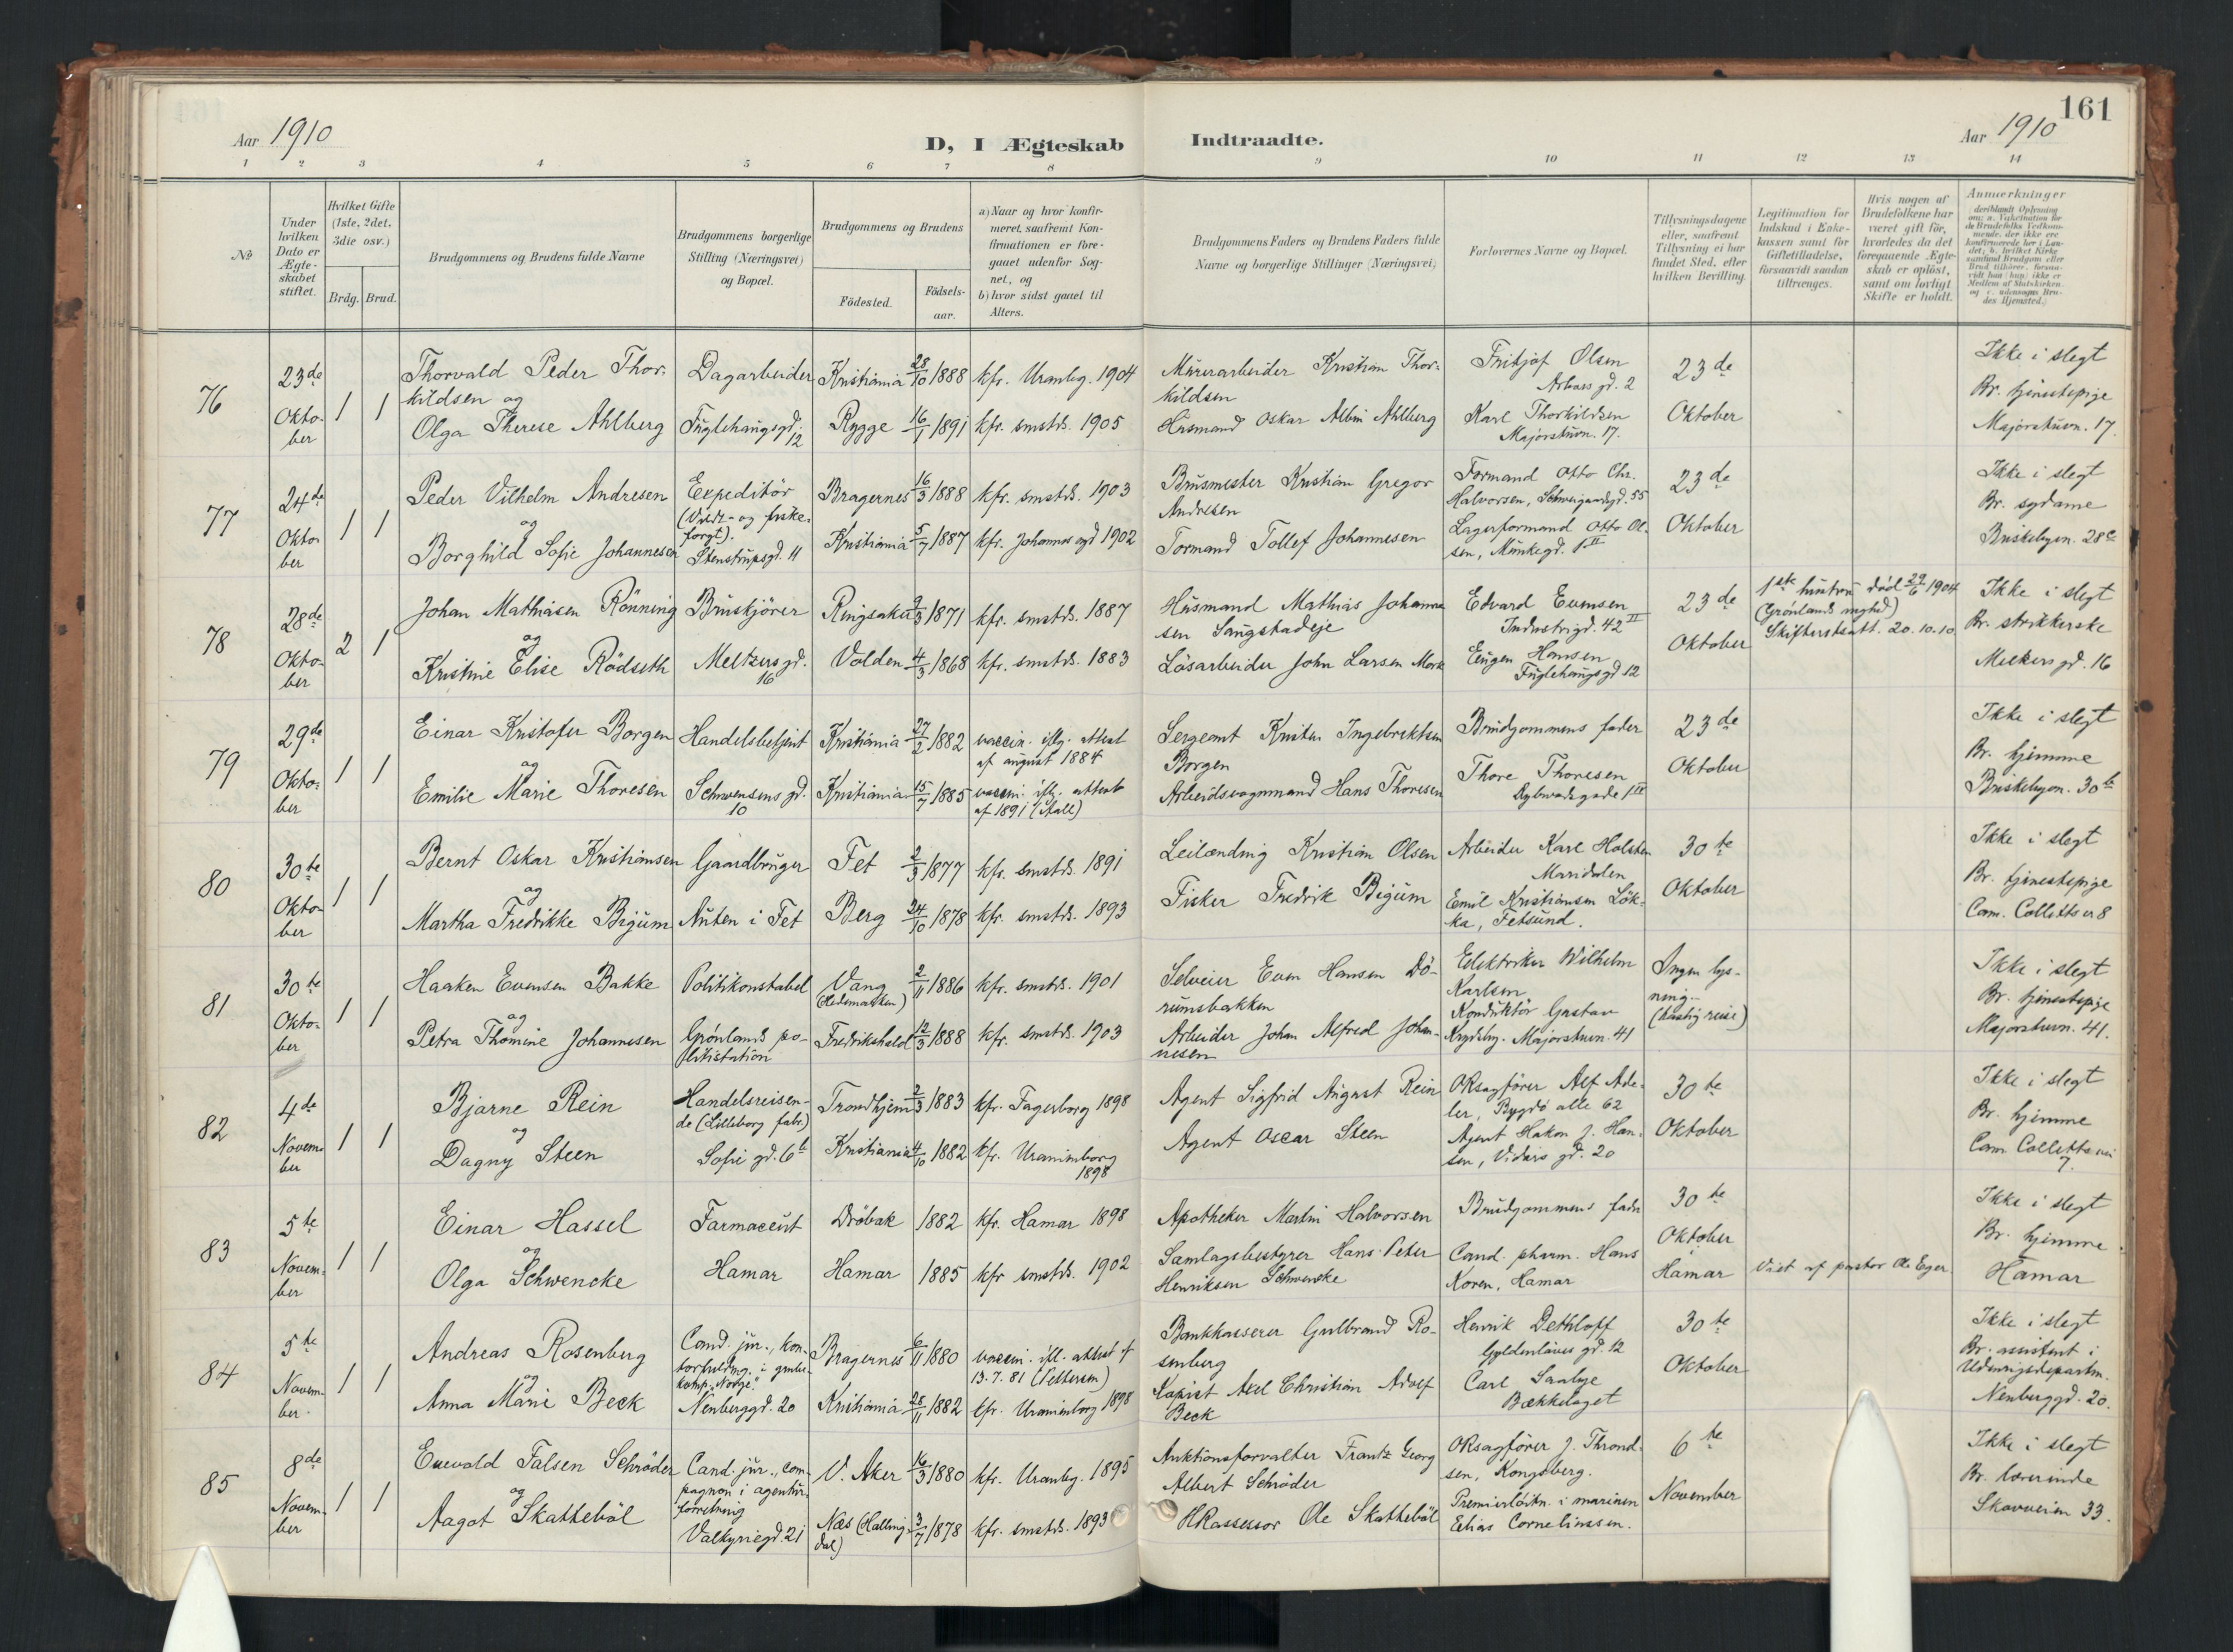 161
Aar 1910
D, I Ægteskab Indtraadte.
Aar 1910
1 2 3 4 5 6 7 8 9 10 11 12 13 14
№
Under hvilken Dato er Ægteskabet stiftet.
Hvilket Gifte (1ste, 2det, 3die osv.)
Brdg. Brud.
Brudgommens og Brudens fulde Navne
Brudgommens borgerlige Stilling (Næringsvei) og Bopæl.
Brudgommens og Brudens
Födested.
Födsels-aar.
a) Naar og hvor konfir-
meret, saafremt Kon-
firmationen er fore-
gaaet udenfor Sog-
net, og
b) hvor sidst gaaet til
Alters.
Brudgommens Faders og Brudens Faders fulde
Navne og borgerlige Stillinger (Næringsvei)
Forlovernes Navne og Bopæl.
Tillysningsdagene
eller, saafremt
Tillysning ei har
fundet Sted, efter
hvilken Bevilling.
Legitimation for
Indskud i Enke-
kassen samt for
Giftetilladelse,
forsaavidt saadan
tiltrænges.
Hvis nogen af
Brudefolkene har
været gift för,
hvorledes da det
foregaaende Ægte-
skab er oplöst,
samt om lovligt
Skifte er holdt.
Anmerkninger
76
23de Oktober
1 1
Thorvald Peder Thor-
kildsen og
Olga Therese Ahlberg
Dagarbeider
Fuglehaugsgd. 12
Kristiania 28/10 1888 kfr. Uranbg. 1904
Rygge 16/1 1891 kfr. smstds. 1905
Murerarbeider Kristian Thor-
kildsen
Husmand Oskar Albin Ahlberg
Fritjof Olsen
gd. 2
Karl Thorkildsen
Majorstuvn. 17.
23de Oktober
Ikke i slegt
Br. tjenestepige
Majorstuvn. 17.
77
24de Oktober
1 1
Peder Vilhelm Andresen
og
Borghild Sofie Johannesen
Expeditör
(Vildt- og fiske-
forgt).
Stenstrupsgd. 11
Bragernes 16/3 1888 kfr. smstds. 1903
Kristiania 5/7 1887 kfr. Johannes 1902
Brusmester Kristian Gregor
Andresen
Formand Tollef Johannesen
Formand Otto Chr.
Halvorsen, Schweigaardsgd. 55
Lagerformand Otto Ol-
sen, Munkegd. 1 II
23de Oktober
Ikke i slegt
Br. sydame
Briskebyvn. 28c
78
28de Oktober
2 1
Johan Mathiasen Rönning
og
Kristine Elise Rödseth
Bruskjörer
Meltzersgd.
16
Ringsaker 9/3 1871 kfr. smstds. 1887
Volden 4/3 1868 kfr. smstds. 1883
Husmand Mathias Johanne
sen Saugstadeje
Lösarbeider John Larsen Mork
Edvard Evensen
Industrigd. 42 II
Eugen Hansen
Fuglehaugsgd 12
23de Oktober
1ste hustru död 29/6 1904
(Grönlands mghed)
Skifteretsatt. 20.10.10.
Ikke i slegt
Br. strikkerske
Meltzersgd. 16
79
29de Oktober
1 1
Einar Kristofer Borgen
og
Emilie Marie Thoresen
Handelsbetjent
Schwensens gd.
10
Kristiania 27/2 1882 vaccin. iflg. attest
af august 1884
Kristiania 15/7 1885 vaccin. iflg. attest
af 1891 (Aall)
Sergeant Kristen Ingebrektsen
Borgen
Arbeidsvognmand Hans Thoresen
Brudgommens fader
Thore Thoresen
23de Oktober
Ikke i slegt
Br. hjemme
Briskebyvn. 30b
80
30te Oktober
1 1
Bernt Oskar Kristiansen
og
Martha Fredrikke Bigum
Gaardbruger
Auten i Fet
Fet 2/3 1877 kfr. smstds. 1891
Berg 24/10 1878 kfr. smstds. 1893
Leilænding Kristian Olsen
Fisker Fredrik Bigum
Arbeider Karl Holsten
Maridalen
Emil Kristiansen Lök-
ka, Fetsund.
30te Oktober
Ikke i slegt
Br. tjenestepige
Cam. Colletts v 8
81
30te Oktober
1 1
Haaken Evensen Bakke
og
Petra Thomine Johannesen
Politikonstabel
Grönlands po-
litistation
Vang
(Hedemarken) 2/11 1886 kfr. smstds. 1901
Fredrikshald 12/3 1888 kfr. smstds. 1903
Selveier Even Hansen Dö-
rumsbakken
Arbeider Johan Alfred Johan-
nesen
Elektriker Wilhelm
Karlsen
Konduktör Gustav
Majorstuvn. 41
Ingen lys-
ning.
(hastig reise)
Ikke i slegt
Br. tjenestepige
Majorstuvn. 41.
82
4de November
1 1
Bjarne Rein
og
Dagny Steen
Handelsreisen-
de (Lilleborg fabr.)
Sofie gd. 6b
Trondhjem 2/3 1883 kfr. Fagerborg 1898
Kristiania 4/10 1882 kfr. Uranienborg
1898
Agent Sigfrid August Rein
Agent Oscar Steen
ORsagförer Alf Ade-
ler, Bygdö alle 62
Agent Hakon J. Han-
sen, Vidars gd. 20
30te Oktober
Ikke i slegt
Br. hjemme
Cam Colletts vei
7.
83
5te November
1 1
Einar Hassel
og
Olga Schwencke
Farmaceut
Hamar
Dröbak 1882 kfr. Hamar 1898
Hamar 1885 kfr smstds. 1902
Apotheker Martin Halvorsen
Samlagsbestyrer Hans Peter
Henriksen Schwencke
Brudgommens fader
Cand. pharm. Hans
Koren, Hamar
30te Oktober
Hamar
Viet af pastor Ole Eger
Ikke i slegt
Br. hjemme
Hamar
84
5te November
1 1
Andreas Rosenberg
og
Anna Marie Beck
Cand. jur., kon-
torfuldmg. i
komp. "Norge".
Nenberggd. 20
Bragernes 6/11 1880 vaccin. ifl. attest af
13.7.81 (Pettersen)
Kristiania 28/11 1882 kfr. Uranienborg 1898
Bankkasserer Gulbrand Ro-
senberg
Kopist Axel Christian Adolf
Beck
Henrik Dethloff
Gyldenlöves gd. 12
Carl Saabye
Bækkelaget
30te Oktober
Ikke i slegt
Br. assistent i
Udenrigsdepartm.
Nenberggd. 20.
85
8de November
1 1
Enevold Falsen Schröder
og
Aagot Skatteböl
Cand. jur., com-
pagnon i agentur-
forretning
Valkyriegd. 21
V. Aker 16/3 1880 kfr. Uranbg. 1895
Næs (Halling-
dal) 3/7 1878 kfr. smstds. 1893
Auktionsforvalter Frantz Georg
Albert Schröder
HRassessor Ole Skatteböl
ORsagförer J. Thrond-
sen, Kongsberg.
Premierlöitn. i marinen
Elias Corneliussen.
6te November
Ikke i slegt
Br. lærerinde
Skovveien 33.